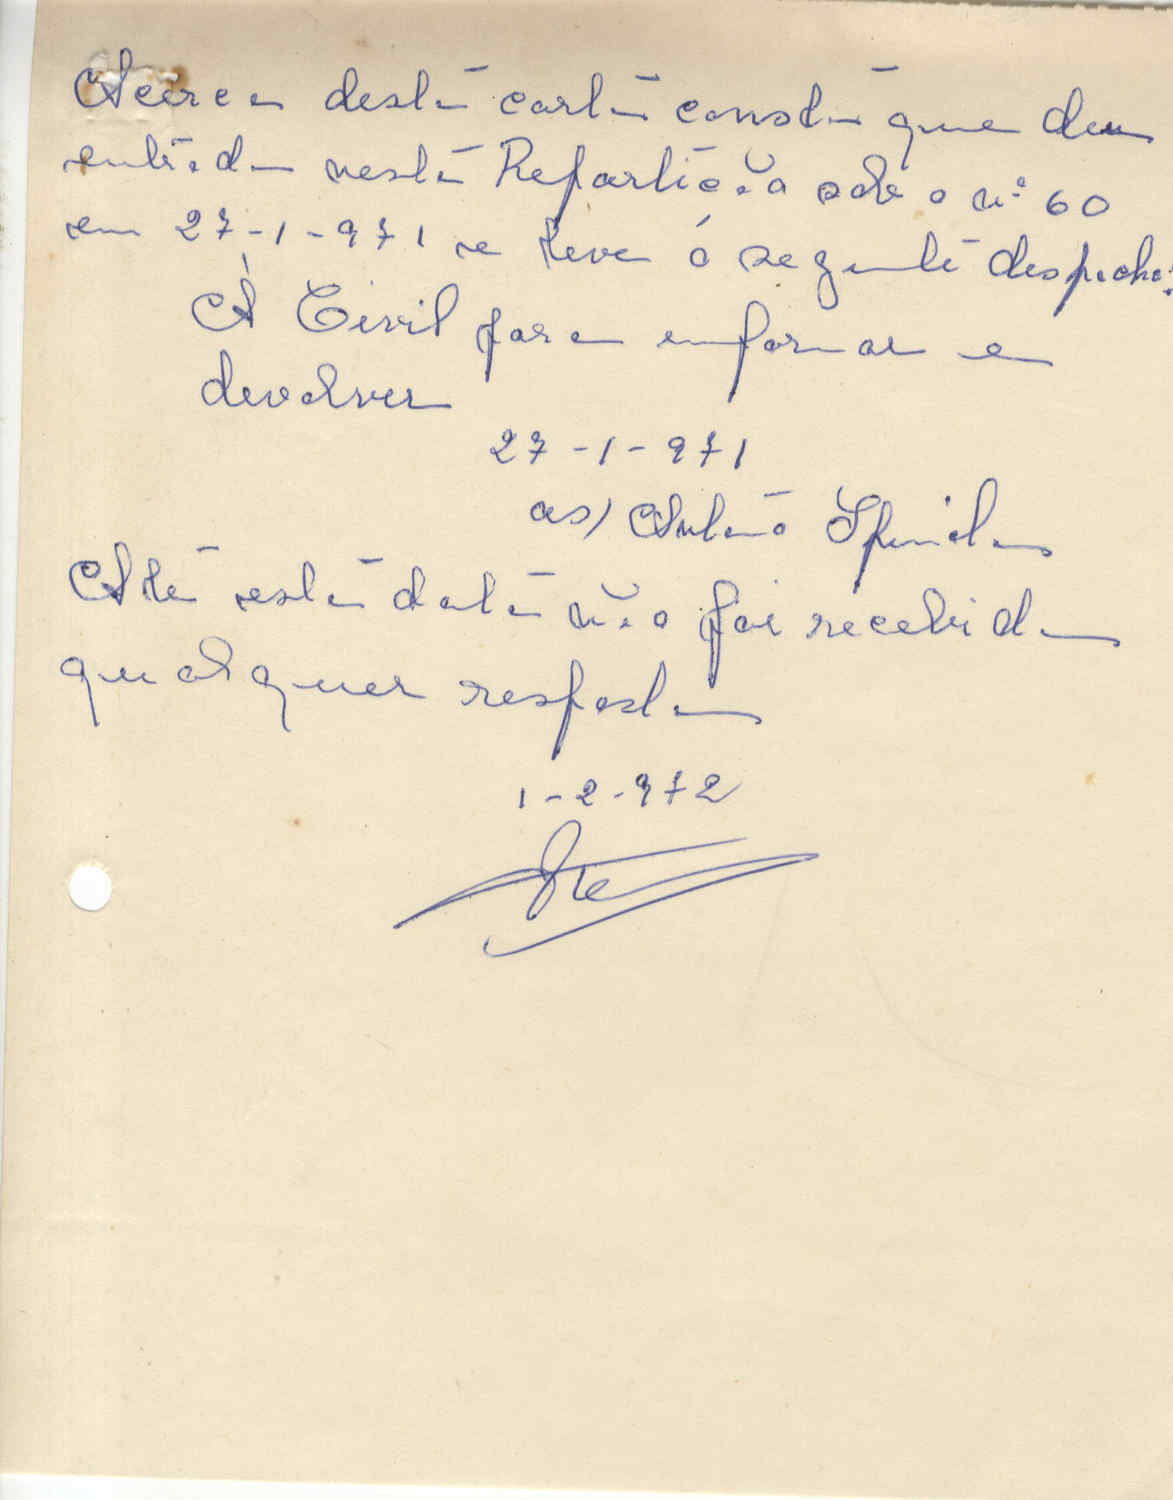 Acerca desta carta consta que deu
entrada nesta Repartição sob o nº 60
em 27-1-971 e teve o seguinte despacho:
À Civil para informar e
devolver
27-1-971
as) António Spinola
Até esta data não foi recebida
qualquer resposta
1-2-972